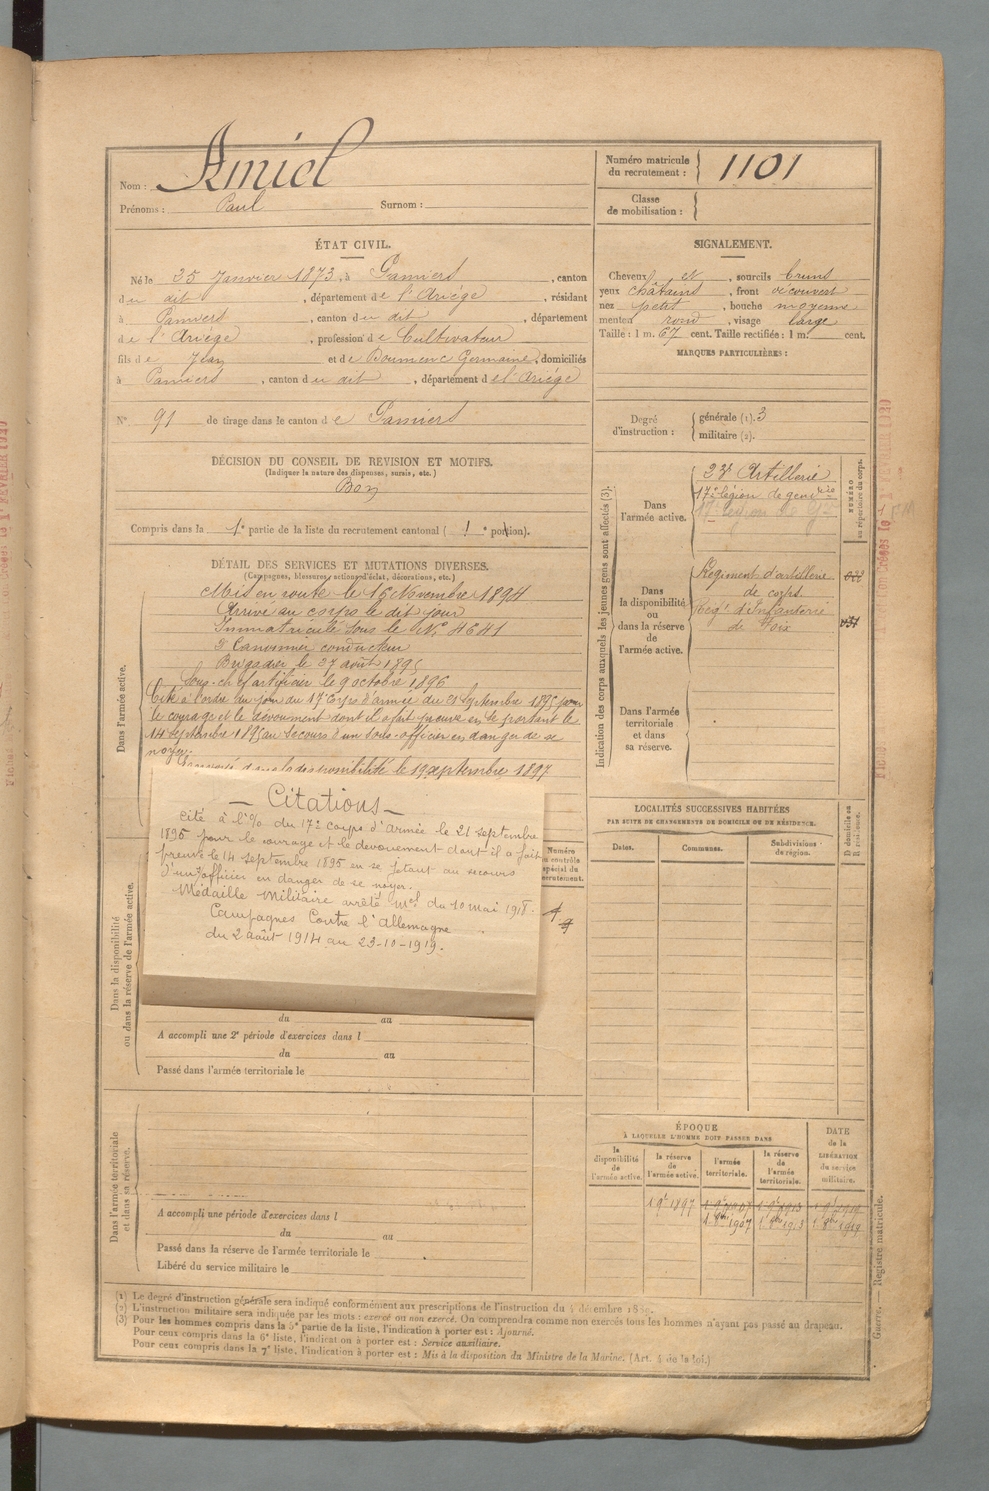 Nom : Amiel
Prénoms : Paul Surnom :
Numéro matricule du recrutement : 1101
Classe de mobilisation :
ÉTAT CIVIL.
Né le 25 Janvier 1873, à Pamiers, canton
du dit, département de l'Ariége, résidant
à Pamiers, canton du dit, département
de l'Ariége, profession de Cultivateur
fils de Jean et de Boumenc Germaine, domiciliés
à Pamiers, canton du dit, département de l'Ariége
N° 91 de tirage dans le canton de Pamiers
SIGNALEMENT.
Cheveux et, sourcils bruns
yeux châtains, front découvert
nez petit, bouche moyenne
menton rond, visage large
Taille : 1 m. 67 cent. Taille rectifiée : 1 m. cent.
MARQUES PARTICULIÈRES :
Degré d'instruction : générale (1). 3
militaire (2).
DÉCISION DU CONSEIL DE REVISION ET MOTIFS.
(Indiquer la nature des dispenses, sursis, etc.)
Bon
Compris dans la 1e partie de la liste du recrutement cantonal ( 1e portion).
DÉTAIL DES SERVICES ET MUTATIONS DIVERSES.
(Campagnes, blessures, actions d'éclat, décorations, etc.)
Dans l'armée active.
Mis en route le 16 Novembre 1894
Arrivé au corps le dit jour
Immatriculé sous le N° 4641
2e Canonnier conducteur
Brigadier le 27 août 1895
Sous-chef artificier le 9 octobre 1896
Cité à l'ordre du jour du 17e Corps d'armée du 21 Septembre 1895 pour
le courage et le dévoument dont il a fait preuve en se portant le
14 Septembre 1895 au secours d'un sous-officier en danger de se
noyer.
Envoyé dans la disponibilité le 19 septembre 1897
— Citations —
Cité à l'% du 17e corps d'Armée le 21 septembre
1895 pour le courage et le dévouement dont il a fait
preuve le 14 septembre 1895 en se jetant au secours
d'un s/officier en danger de se noyer.
Médaille Militaire arrêté Mel du 10 mai 1918.
Campagnes Contre l'Allemagne
du 2 août 1914 au 23-10-1919.
Dans la disponibilité
ou dans la réserve de l'armée active.
du au
A accompli une 2e période d'exercices dans l
du au
Passé dans l'armée territoriale le
Dans l'armée territoriale
et dans sa réserve.
A accompli une période d'exercices dans l
du au
Passé dans la réserve de l'armée territoriale le
Libéré du service militaire le
Indication des corps auxquels les jeunes gens sont affectés (3).
NUMÉRO
au répertoire du corps.
Dans l'armée active.
23e Artillerie
17e légion de gendrie
Dans la disponibilité ou dans la réserve de l'armée active.
Régiment d'artillerie
de corps
Regt d'Infanterie
de Foix
Dans l'armée territoriale et dans sa réserve.
LOCALITÉS SUCCESSIVES HABITÉES
PAR SUITE DE CHANGEMENTS DE DOMICILE OU DE RÉSIDENCE.
Dates. Communes. Subdivisions de région.
D domicile ou R résidence.
ÉPOQUE
À LAQUELLE L'HOMME DOIT PASSER DANS
la disponibilité de l'armée active.
la réserve de l'armée active.
l'armée territoriale.
la réserve de l'armée territoriale.
DATE de la LIBÉRATION du service militaire.
(1) Le degré d'instruction générale sera indiqué conformément aux prescriptions de l'instruction du 4 décembre 1889.
(2) L'instruction militaire sera indiquée par les mots : exercé ou non exercé. On comprendra comme non exercés tous les hommes n'ayant pas passé au drapeau.
(3) Pour les hommes compris dans la 5e partie de la liste, l'indication à porter est : Ajourné.
Pour ceux compris dans la 6e liste, l'indication à porter est : Service auxiliaire.
Pour ceux compris dans la 7e liste, l'indication à porter est : Mis à la disposition du Ministre de la Marine. (Art. 4 de la loi.)
Guerre. — Registre matricule.